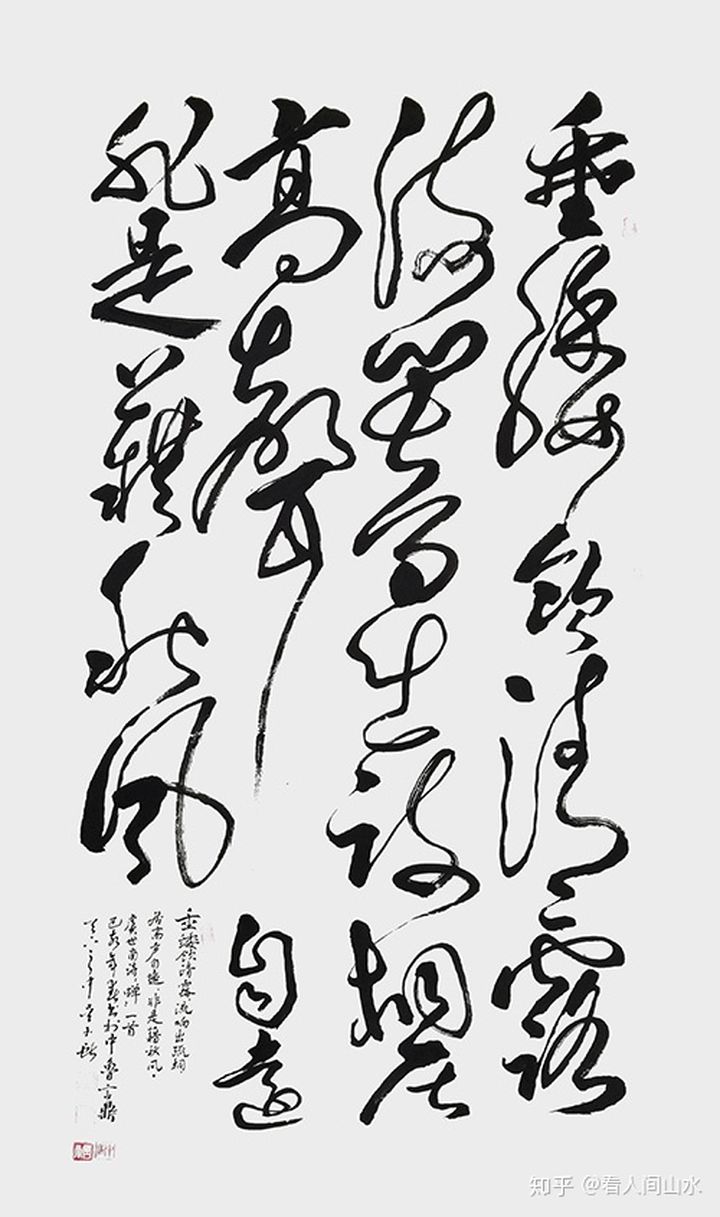 垂緌飲清露
流響出疏桐居
高聲自遠
非是藉秋風
垂緌飲清露流响出疏桐
居高声自遠非是藉秋风
虞世南诗蟬一首
己亥年
知乎 @看人间山水